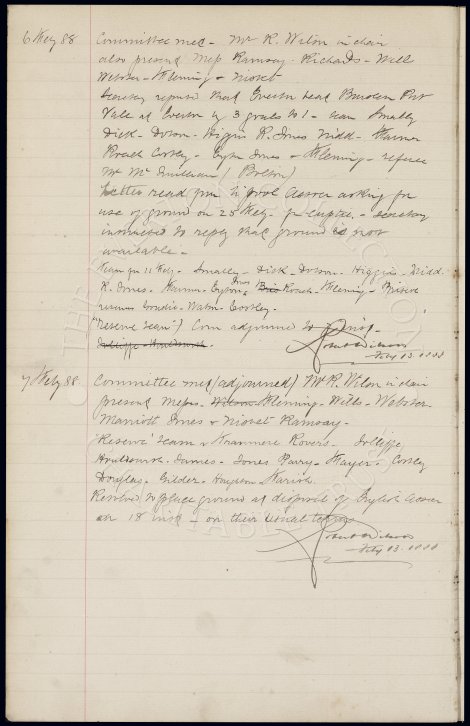 6 Feby 88 Committee met - Mr R. Wilson in chair
also present Mess Ramsay - Richards - Wills
Webster - Fleming - Nisbet
Secretary reported that Everton beat Burslem Port
Vale at Everton by 3 goals to 1 - team Smalley
Dick - Dobson - Higgins R. Jones Weir - Farmer
Roach Costley - Jones & Fleming - referee
Mr Mc (Bolton)
Letter read from L'pool Assoc asking for
use of ground on 25 Feby - for cup tie - Secretary
instructed to reply that ground is not
available -
Team for 11 Feby - Smalley - Dick - Dobson - Higgins -
R. Jones - Farmer - Jones Roach - Fleming -
reserves Goudie - Watson Costley.
("Reserve team") Com adjourned to
Robert Wilson
Feby 13. 1888
7 Feby 88 Committee met (adjourned) Mr R. Wilson in chair
present Mess. Fleming - Wills - Webster
Marriott Jones & Nisbet Ramsay -
'Reserve' team v Tranmere Rovers - Jolliffe
James - Jones Parry - - Costley
Douglas - Gilder - Houghton
Resolved to place ground at disposal of English Assoc
on 18 inst - on their usual terms
Robert Wilson
Feby 13. 1888